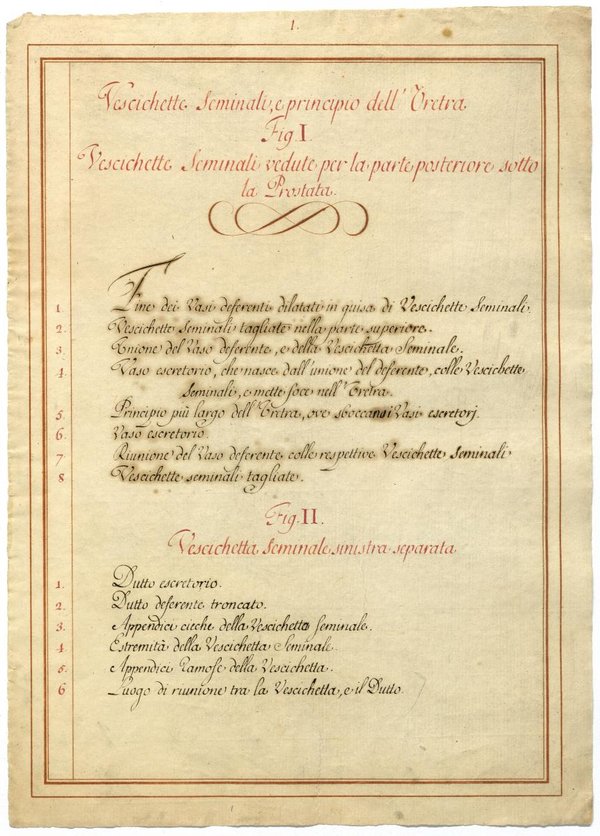 1.
Vescichette Seminali, e principio dell' Uretra
Fig. I.
Vescichette Seminali vedute per la parte posteriore sotto
la Prostata.
1. Fine dei Vasi deferenti dilatati in guisa di Vescichette Seminali.
2. Vescichette Seminali tagliate nella parte superiore.
3. Unione del Vaso deferente, e della Vescichetta Seminale.
4. Vaso escretorio, che nasce dall' unione del deferente, colle Vescichette
Seminali, e mette foce nell' Uretra.
5. Principio più largo dell' Uretra, ove sboccano i Vasi escretorj.
6. Vaso escretorio.
7 Riunione del Vaso deferente colle respettive Vescichette Seminali
8 Vescichette seminali tagliate.
Fig. II
Vescichetta Seminale sinistra separata
1. Dutto escretorio.
2. Dutto deferente troncato.
3. Appendici cieche della Vescichetta Seminale.
4. Estremità della Vescichetta Seminale.
5. Appendici Ramose della Vescichetta.
6 Luogo di riunione tra la Vescichetta, e il Dutto.